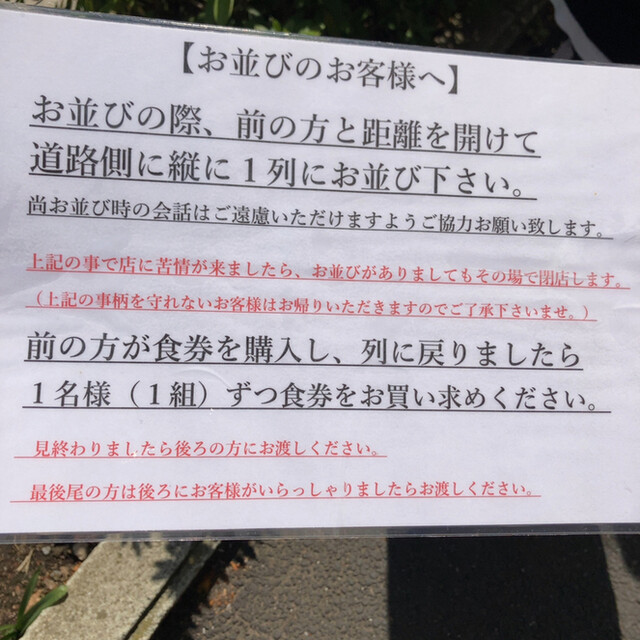 【お並びのお客様へ】
お並びの際、前の方と距離を開けて
道路側に縦に１列にお並び下さい。
尚お並び時の会話はご遠慮いただけますようご協力お願い致します。
上記の事で店に苦情が来ましたら、お並びがありましてもその場で閉店します。
（上記の事柄を守れないお客様はお帰りいただきますのでご了承下さいませ。）
前の方が食券を購入し、列に戻りましたら
１名様（１組）ずつ食券をお買い求めください。
見終わりましたら後ろの方にお渡しください。
最後尾の方は後ろにお客様がいらっしゃりましたらお渡しください。